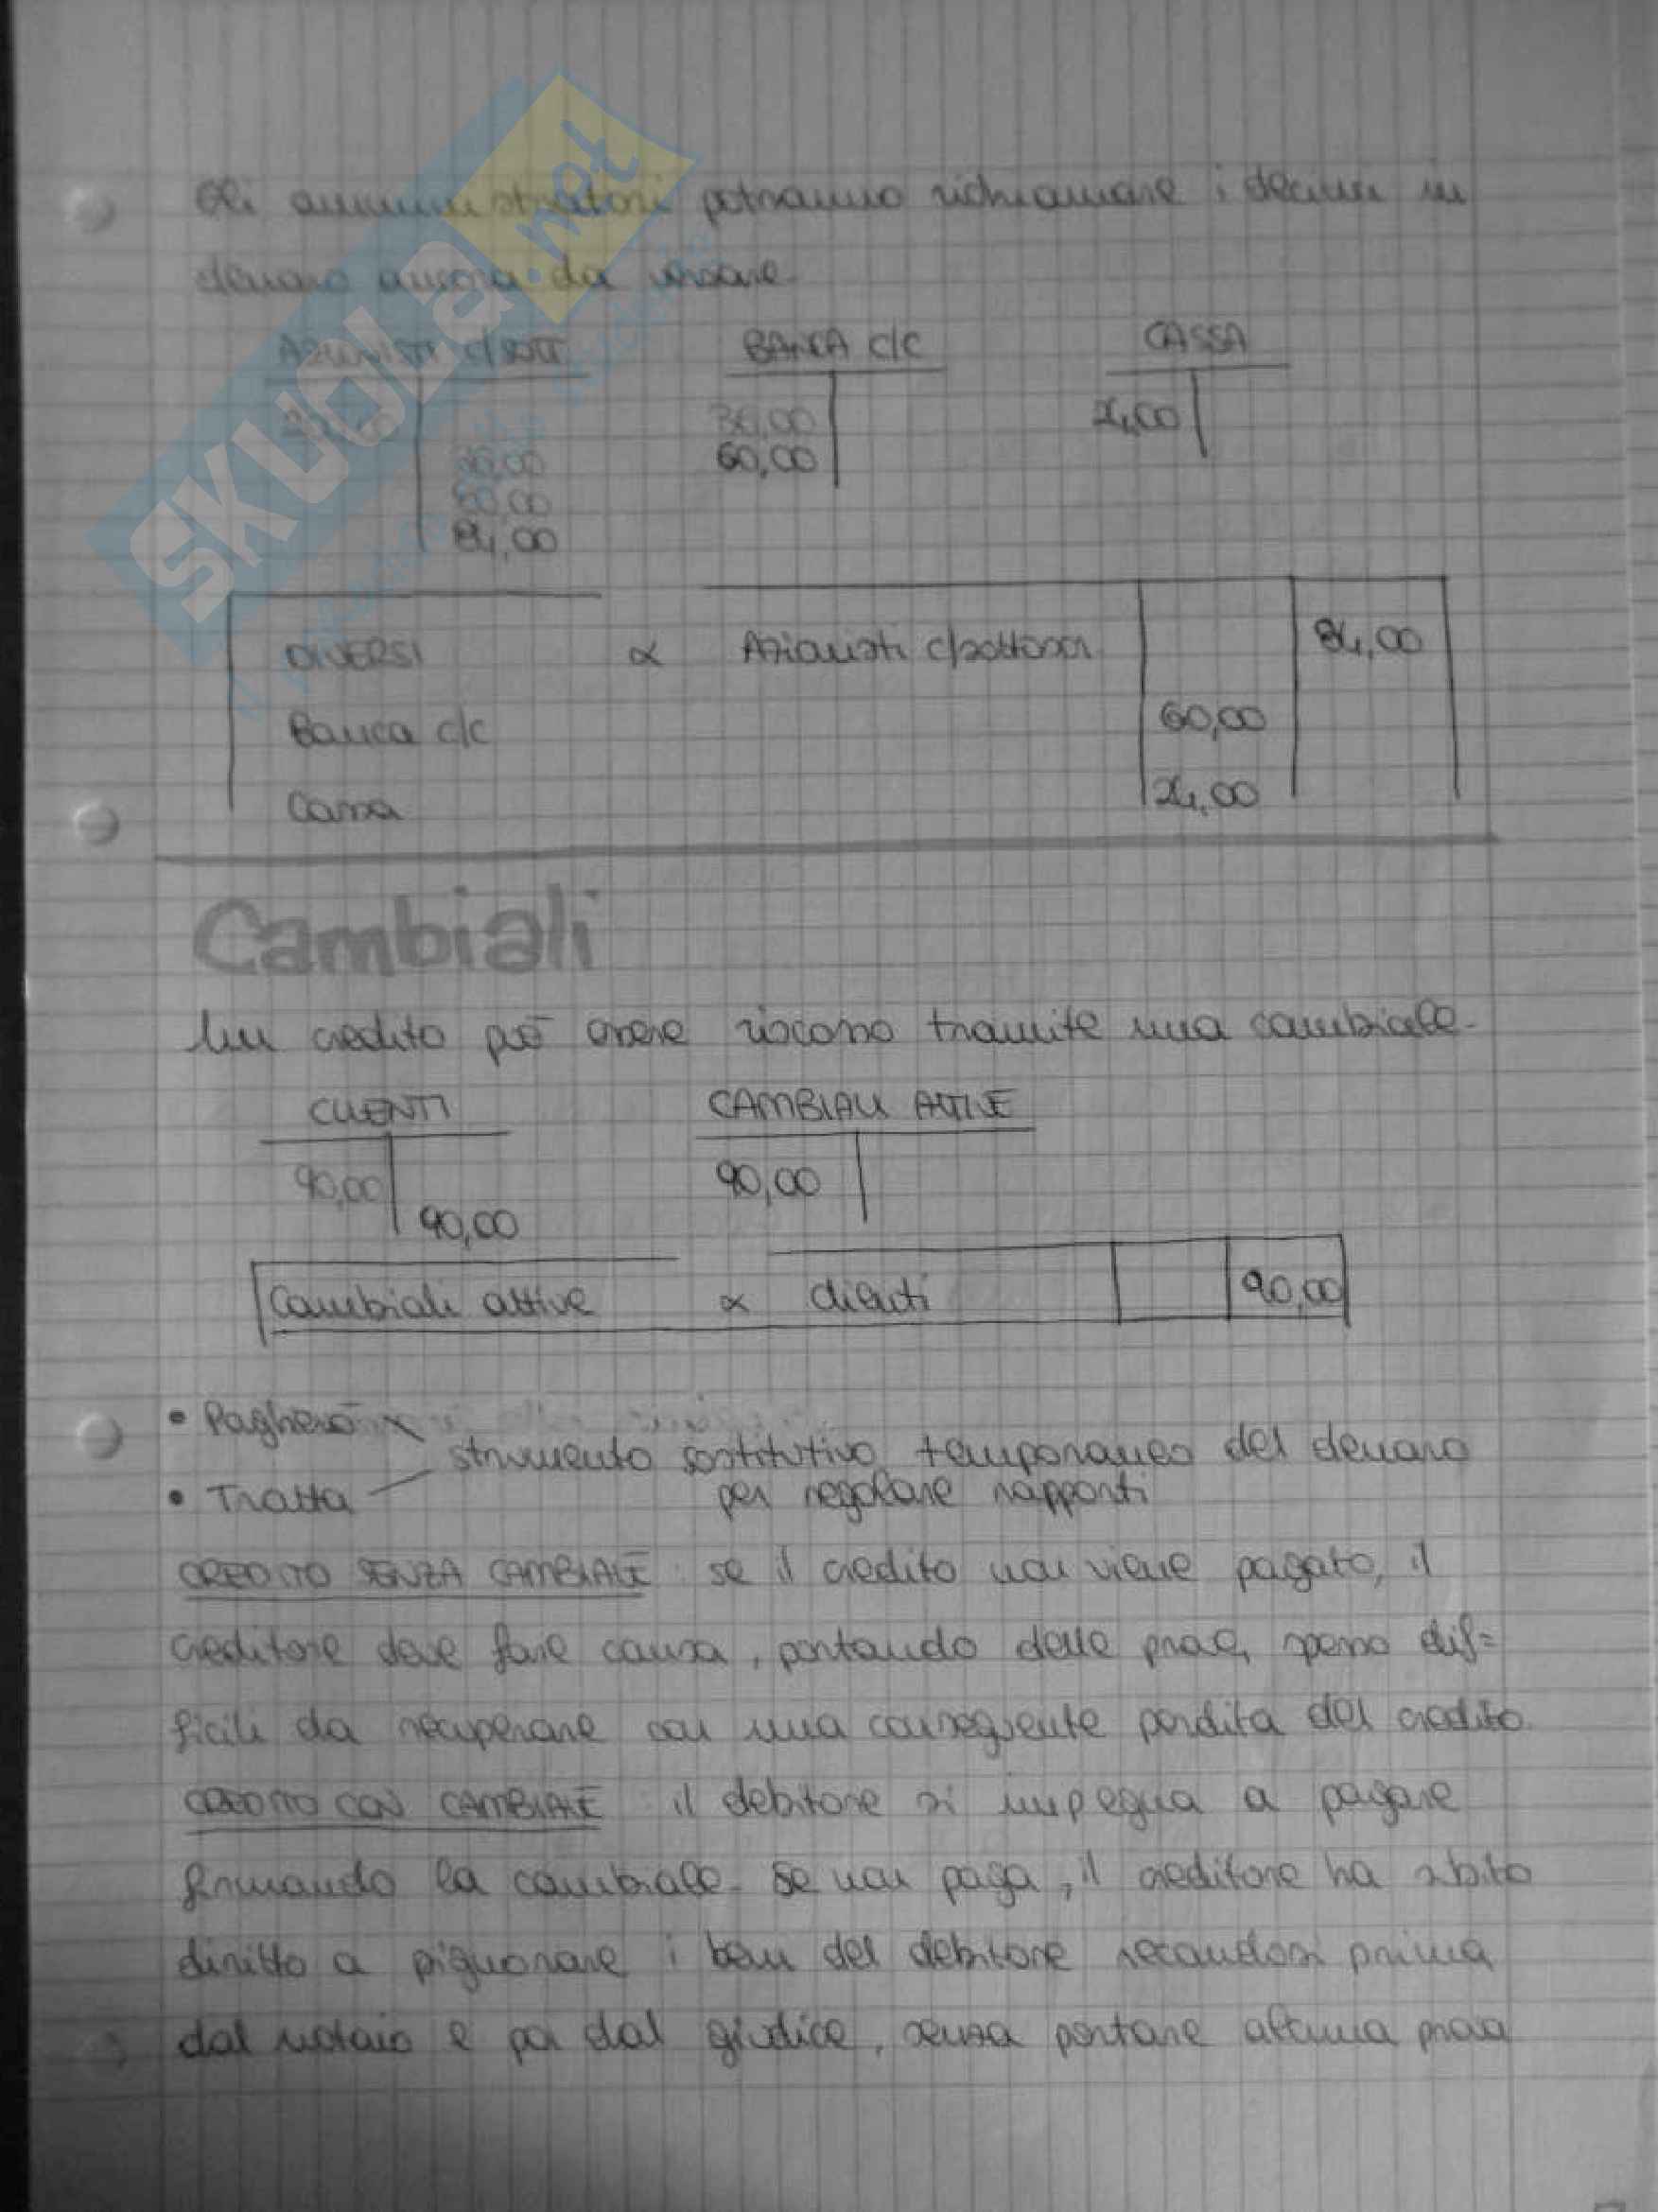 Gli amministratori potranno richiamare i decimi in
denaro ancora da versare.
AZIONISTI C/SOTT BANCA C/C CASSA
36,00 24,00
36,00 60,00
60,00
84,00
DIVERSI a Azionisti c/sottoscr 84,00
Banca c/c 60,00
Cassa 24,00
Cambiali
Un credito può essere riscosso tramite una cambiale.
CLIENTI CAMBIALI ATTIVE
90,00 90,00
90,00
Cambiali attive a clienti 90,00
• Pagherò
strumento sostitutivo temporaneo del denaro
• Tratta per regolare rapporti
CREDITO SENZA CAMBIALE: se il credito non viene pagato, il
creditore deve fare causa, portando delle prove, spesso dif=
ficili da recuperare con una conseguente perdita del credito.
CREDITO CON CAMBIALE: il debitore si impegna a pagare
firmando la cambiale. Se non paga, il creditore ha subito
diritto a pignorare i beni del debitore recandosi prima
dal notaio e poi dal giudice, senza portare alcuna prova
SKUOLA.net